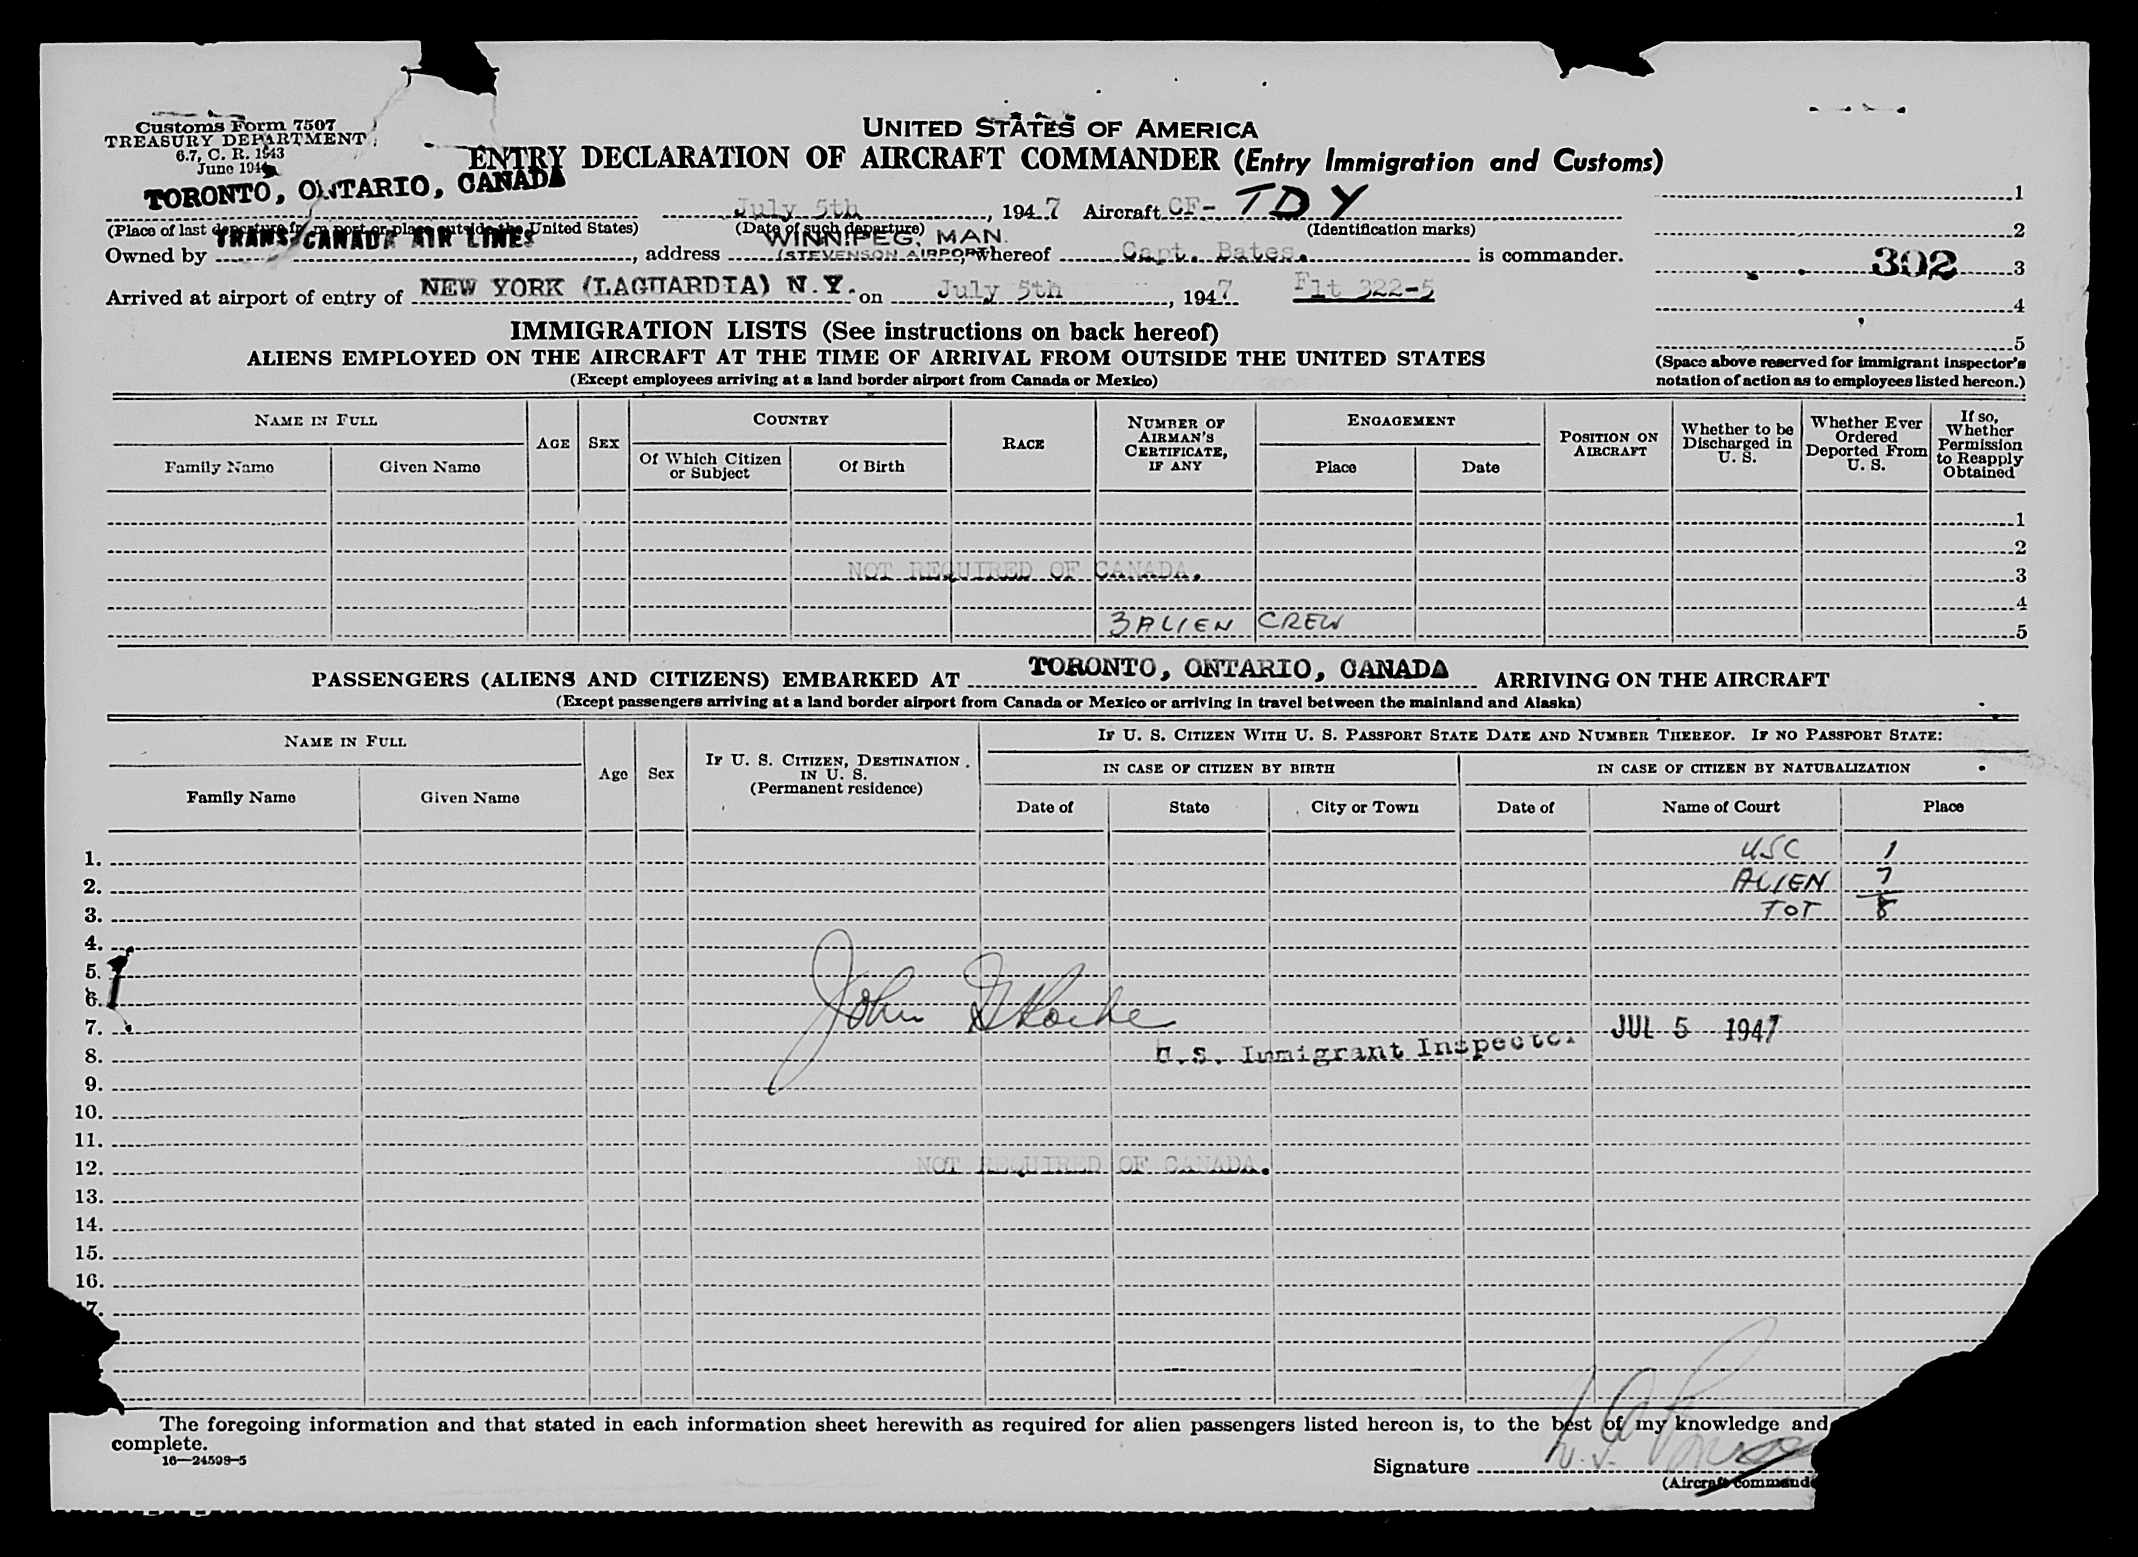 Customs Form 7507
TREASURY DEPARTMENT
6.7, C. R. 1943
June 194
UNITED STATES OF AMERICA
ENTRY DECLARATION OF AIRCRAFT COMMANDER (Entry Immigration and Customs)
TORONTO, ONTARIO, CANADA
July 5th, 1947 Aircraft CF-TDY
1
(Place of last departure from port or place outside the United States) (Date of such departure) (Identification marks)
2
TRANS-CANADA AIR LINES WINNIPEG, MAN.
Owned by , address (STEVENSON AIRPORT), whereof Capt. Bates. is commander.
302 3
Arrived at airport of entry of NEW YORK (LAGUARDIA) N.Y. on July 5th, 1947 Flt 322-5
4
IMMIGRATION LISTS (See instructions on back hereof)
5
ALIENS EMPLOYED ON THE AIRCRAFT AT THE TIME OF ARRIVAL FROM OUTSIDE THE UNITED STATES
(Space above reserved for immigrant inspector's
notation of action as to employees listed hereon.)
(Except employees arriving at a land border airport from Canada or Mexico)
NAME IN FULL
Family Name
Given Name
AGE
SEX
COUNTRY
Of Which Citizen
or Subject
Of Birth
RACE
NUMBER OF
AIRMAN'S
CERTIFICATE,
IF ANY
ENGAGEMENT
Place
Date
POSITION ON
AIRCRAFT
Whether to be
Discharged in
U. S.
Whether Ever
Ordered
Deported From
U. S.
If so,
Whether
Permission
to Reapply
Obtained
1
2
NOT REQUIRED OF CANADA. 3
4
3 ALIEN CREW 5
PASSENGERS (ALIENS AND CITIZENS) EMBARKED AT TORONTO, ONTARIO, CANADA ARRIVING ON THE AIRCRAFT
(Except passengers arriving at a land border airport from Canada or Mexico or arriving in travel between the mainland and Alaska)
NAME IN FULL
Family Name
Given Name
Age
Sex
IF U. S. CITIZEN, DESTINATION
IN U. S.
(Permanent residence)
IF U. S. CITIZEN WITH U. S. PASSPORT STATE DATE AND NUMBER THEREOF. IF NO PASSPORT STATE:
IN CASE OF CITIZEN BY BIRTH
IN CASE OF CITIZEN BY NATURALIZATION
Date of
State
City or Town
Date of
Name of Court
Place
1. USC 1
2. ALIEN 7
3. TOT 8
4.
5.
6.
John Roche
7. JUL 5 1947
8. U.S. Immigrant Inspector
9.
10.
11.
12. NOT REQUIRED OF CANADA.
13.
14.
15.
16.
17.
The foregoing information and that stated in each information sheet herewith as required for alien passengers listed hereon is, to the best of my knowledge and
complete.
16—24598-5
Signature
(Aircraft command